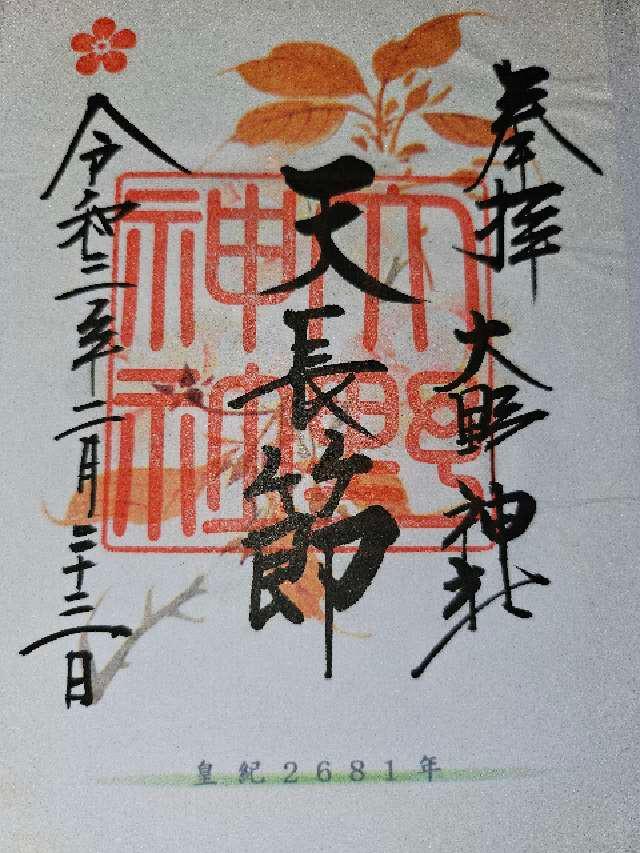 奉拝 大野神社
天長節
令和三年二月二十三日
大野
神社
皇紀2681年